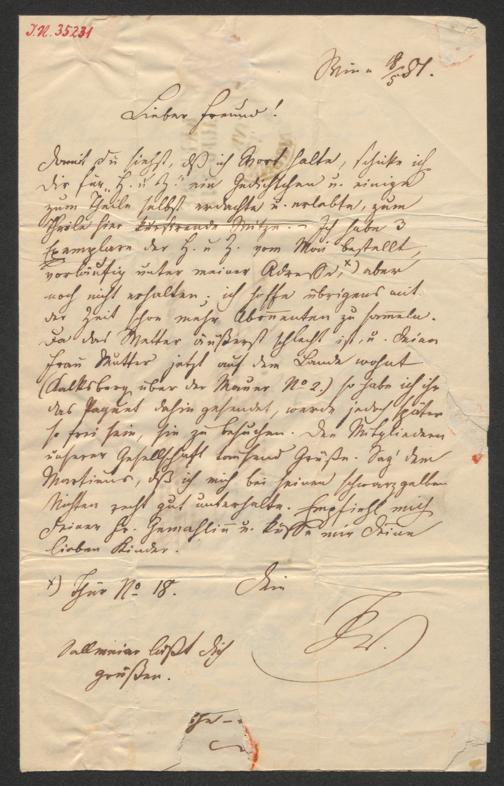 I.N. 35231
Wien 8/5 51.
Lieber Freund!
Damit Du siehst, daß ich Wort halte, schicke ich
Dir für „H. u. Z." ein Gedichtchen u. einige
zum Theile selbst erdachte u. erlebte, zum
Theile hier Witze. – Ich habe 3
Exemplare der H. u. Z. vom Mai bestellt,
vorläufig unter meiner Adresse, x) aber
noch nicht erhalten; ich hoffe übrigens mit
der Zeit schon mehr Abonnenten zu sammeln.
Da das Wetter äußerst schlecht ist, u. Deine
Frau Mutter jetzt auf dem Lande wohnt
(Kalksberg über der Mauer No 2.) so habe ich ihr
das Paquet dahin gesendet, werde jedoch später
so frei sein, sie zu besuchen. Den Mitgliedern
unserer Gesellschaft tausend Grüße. Sag' dem
Martinus, daß ich mich bei seinen schwarzgelben
recht gut unterhalte. Empfiehl mich
Deiner Fr. Gemahlin u. küsse mir Deine
lieben Kinder.
x) Thür No 18. Dein
läßt Dich
grüßen.